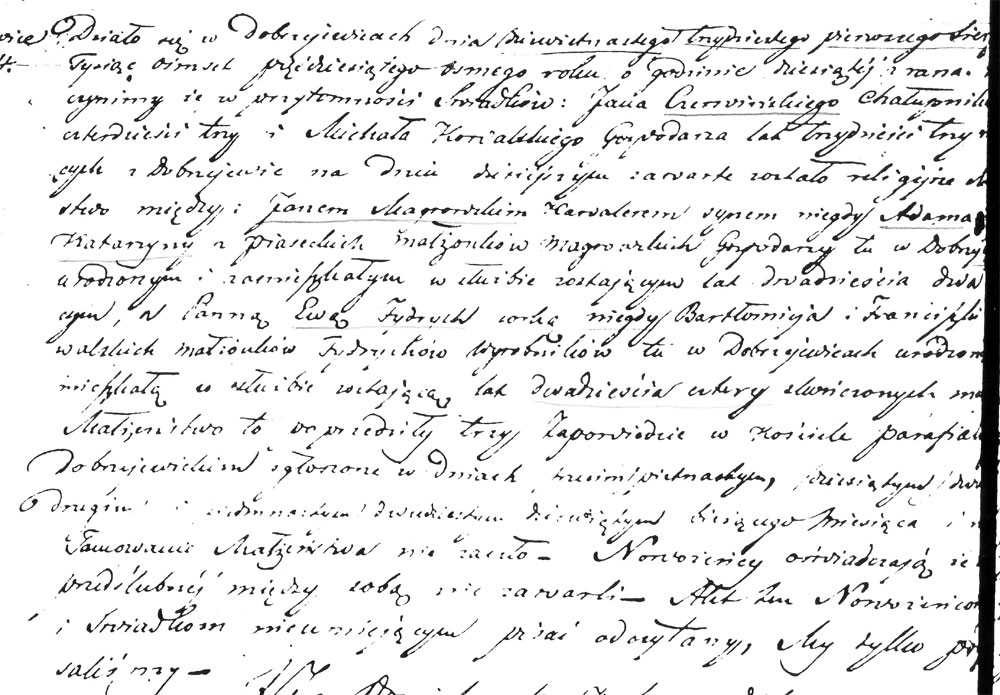 Działo się w Dobrzejewicach dnia dziewietnastego trzydziestego pierwszego Sier
Tysiąc ośmset pięćdziesiątego osmego roku o godzinie dziesiątej z rana.
czynimy że w przytomności Swiadków: Jana Czerwińskiego Chałupnika
czterdzieści trzy i Michała Gospodarza lat trzydzieści trzy
cych z Dobrzejewic na dniu dzisiejszym zawarte zostało religijne
stwo między: Janem Magrowskim Kawalerem synem niegdy Adama
Katarzyny z Piaseckich małżonków Magrowskich Gospodarzy tu w Dobrzej
urodzonym i zamieszkałym w służbie zostającym lat dwadzieścia dwa
cym, a Panną Ewą Fydrych corką niegdy Bartłomieja i Franciszki
walskich małżonków Fydrychów Wyrobników tu w Dobrzejewicach urodzon
mieszkałą w służbie zostającą lat dwadzieścia cztery skończonych
Małżeństwo to poprzedziły trzy Zapowiedzie w Kościele parafial
Dobrzejewickim ogłoszone w dniach trzecim/piętnastym, dziesiątym/dwu
drugim i siedmnastym/dwudziestym dziewiątym bieżącego miesiąca i
Tamowanie Małżeństwa nie zaszło – Nowożeńcy oświadczają że
przedślubnéj między sobą nie zawarli – Akt ten Nowożeńcom
i Swiadkom nieumiejącym pisać odczytany, My tylko
saliśmy –